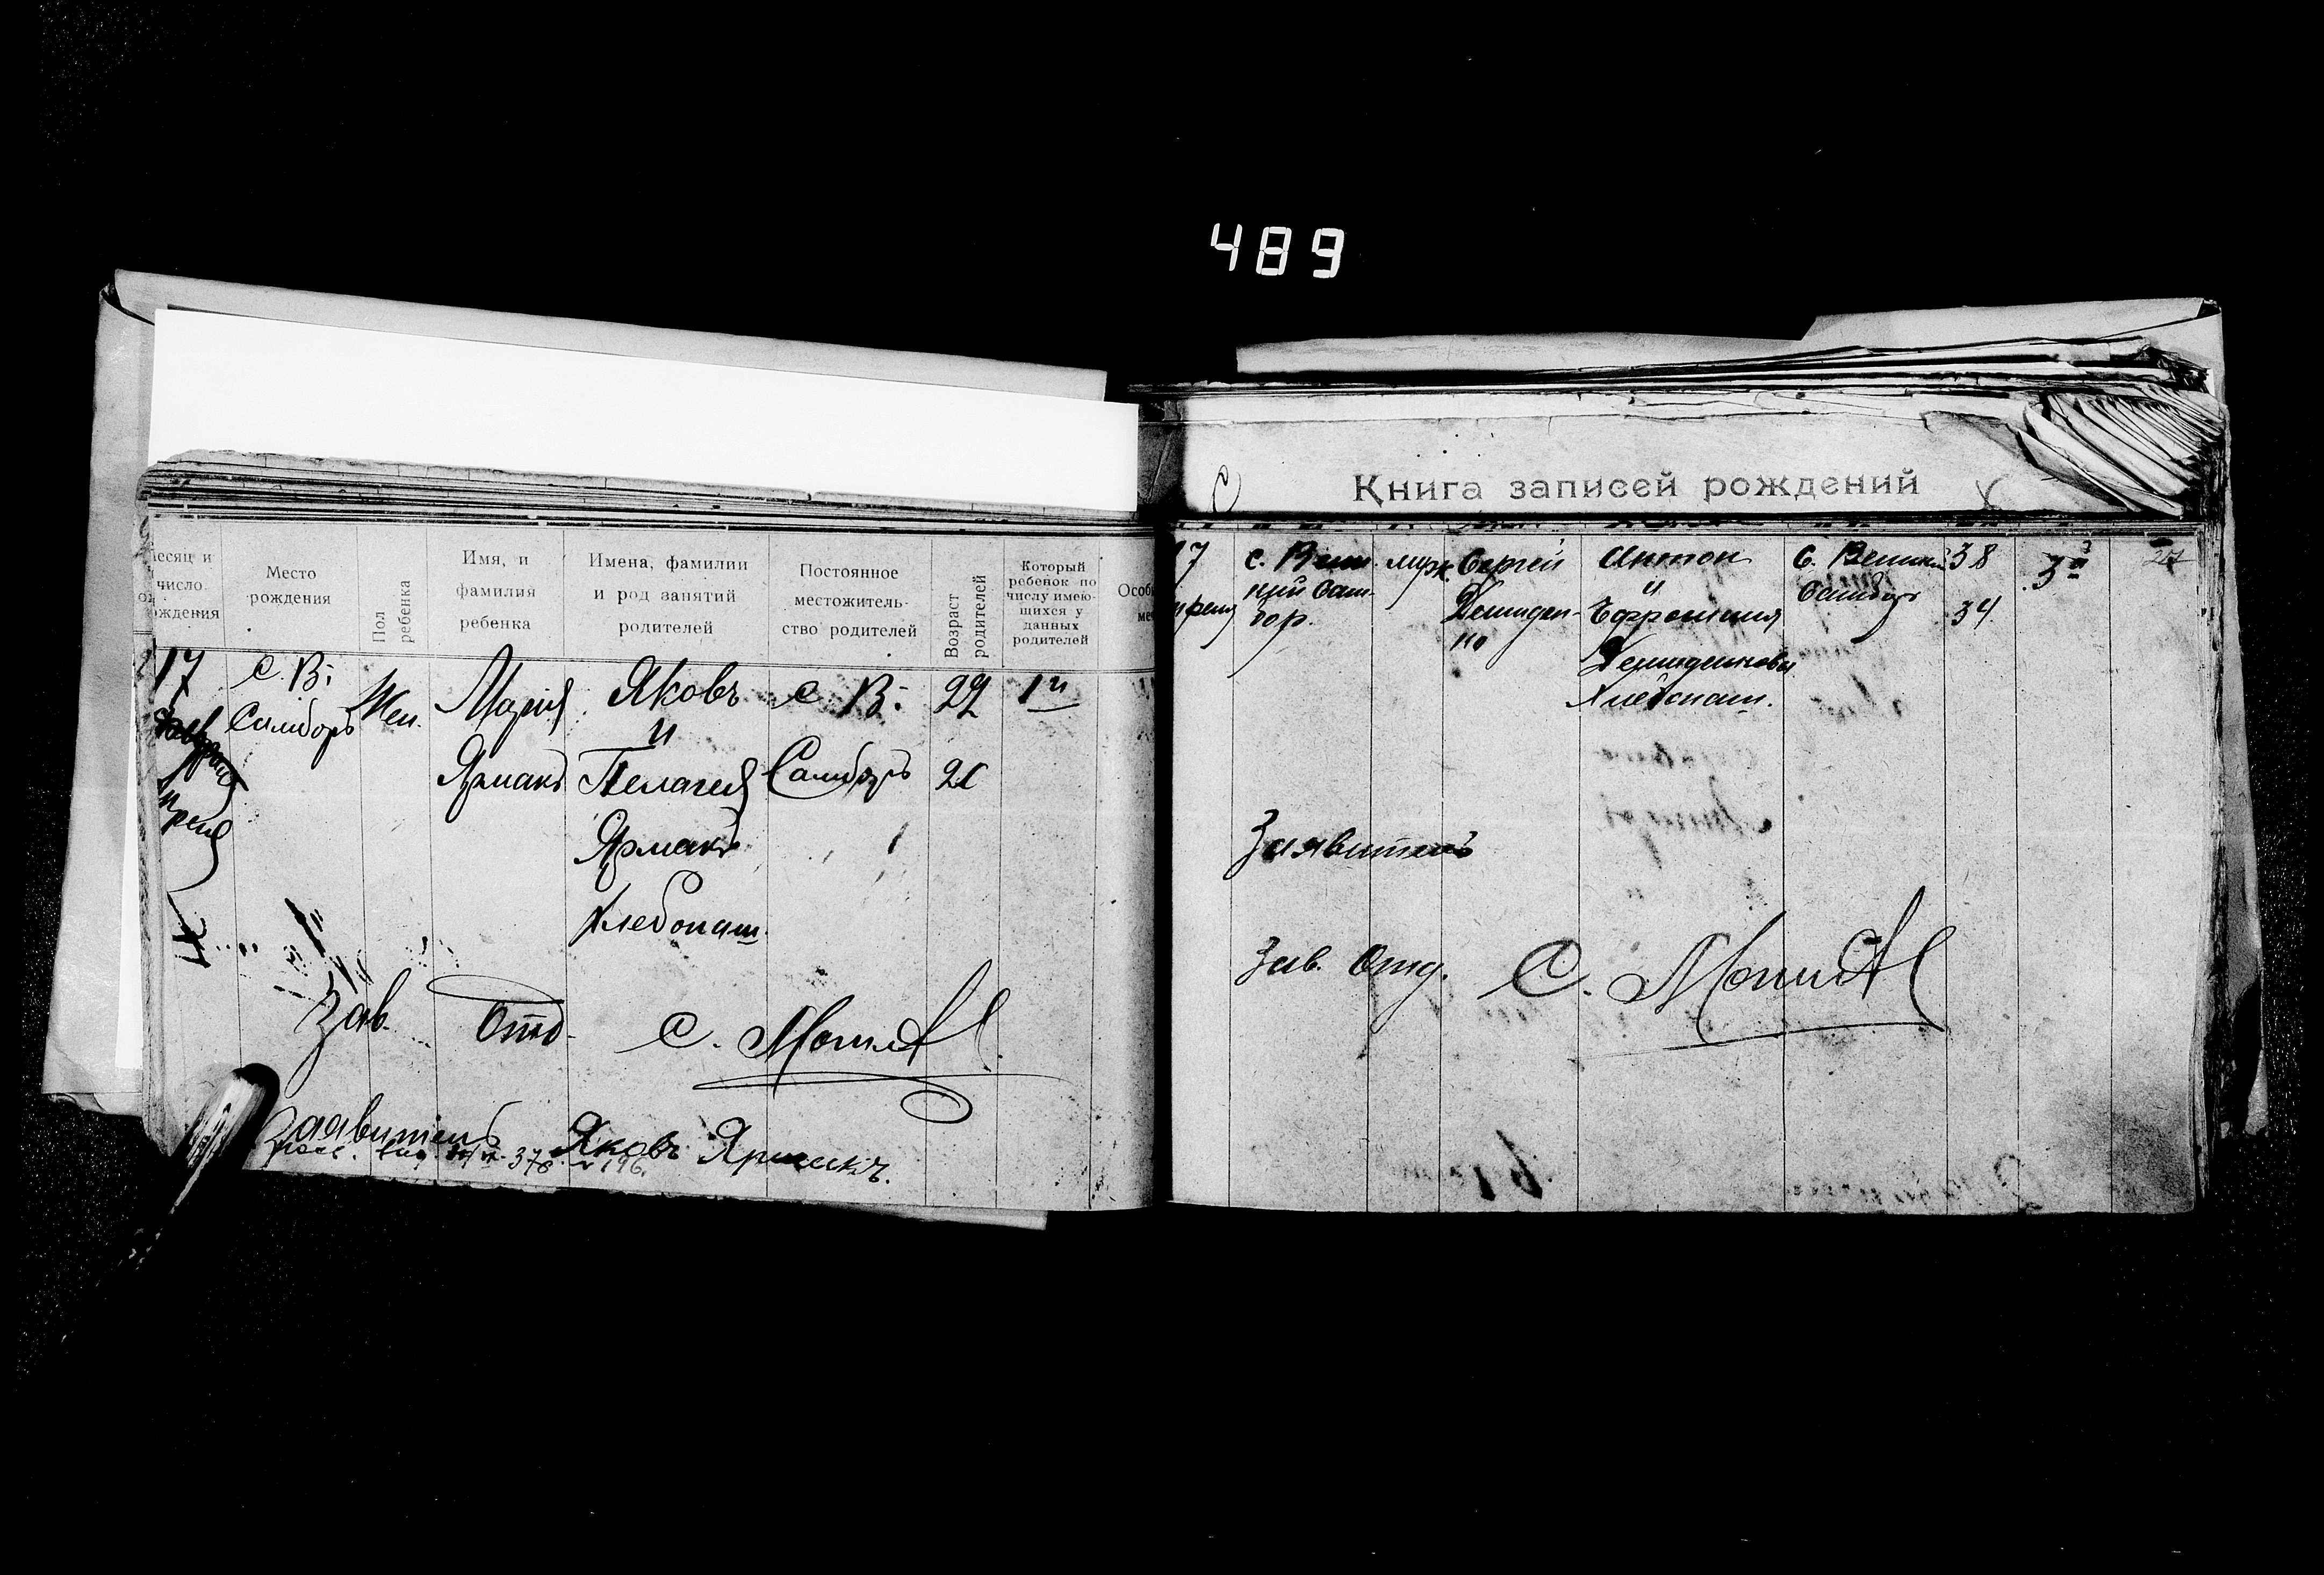 489
Месяц и число рождения
Место рождения
Пол ребенка
Имя, и фамилия ребенка
Имена, фамилии и род занятий родителей
Постоянное местожитель- ство родителей
Возраст родителей
Который ребенок по числу имею- щихся у данных родителей
17
с. В.
Самборъ
Жен.
Мария
Ярмакъ
Яковъ
и
Пелагея
Ярмакъ
хлебопаш.
с. В.
Самборъ
22
21
1й
Зав. Отд. С.
Заявитель Яковъ Ярмакъ.
Книга записей рождений
17
с. Вели-
кий Сам-
бор.
муж.
Сергей
Демиден-
ко
Антон
и
Ефросиния
Демиденковы
Хлебопаш.
С. Великий
Самбор
38
34
3й
Заявитель
Зав. Отд. С.